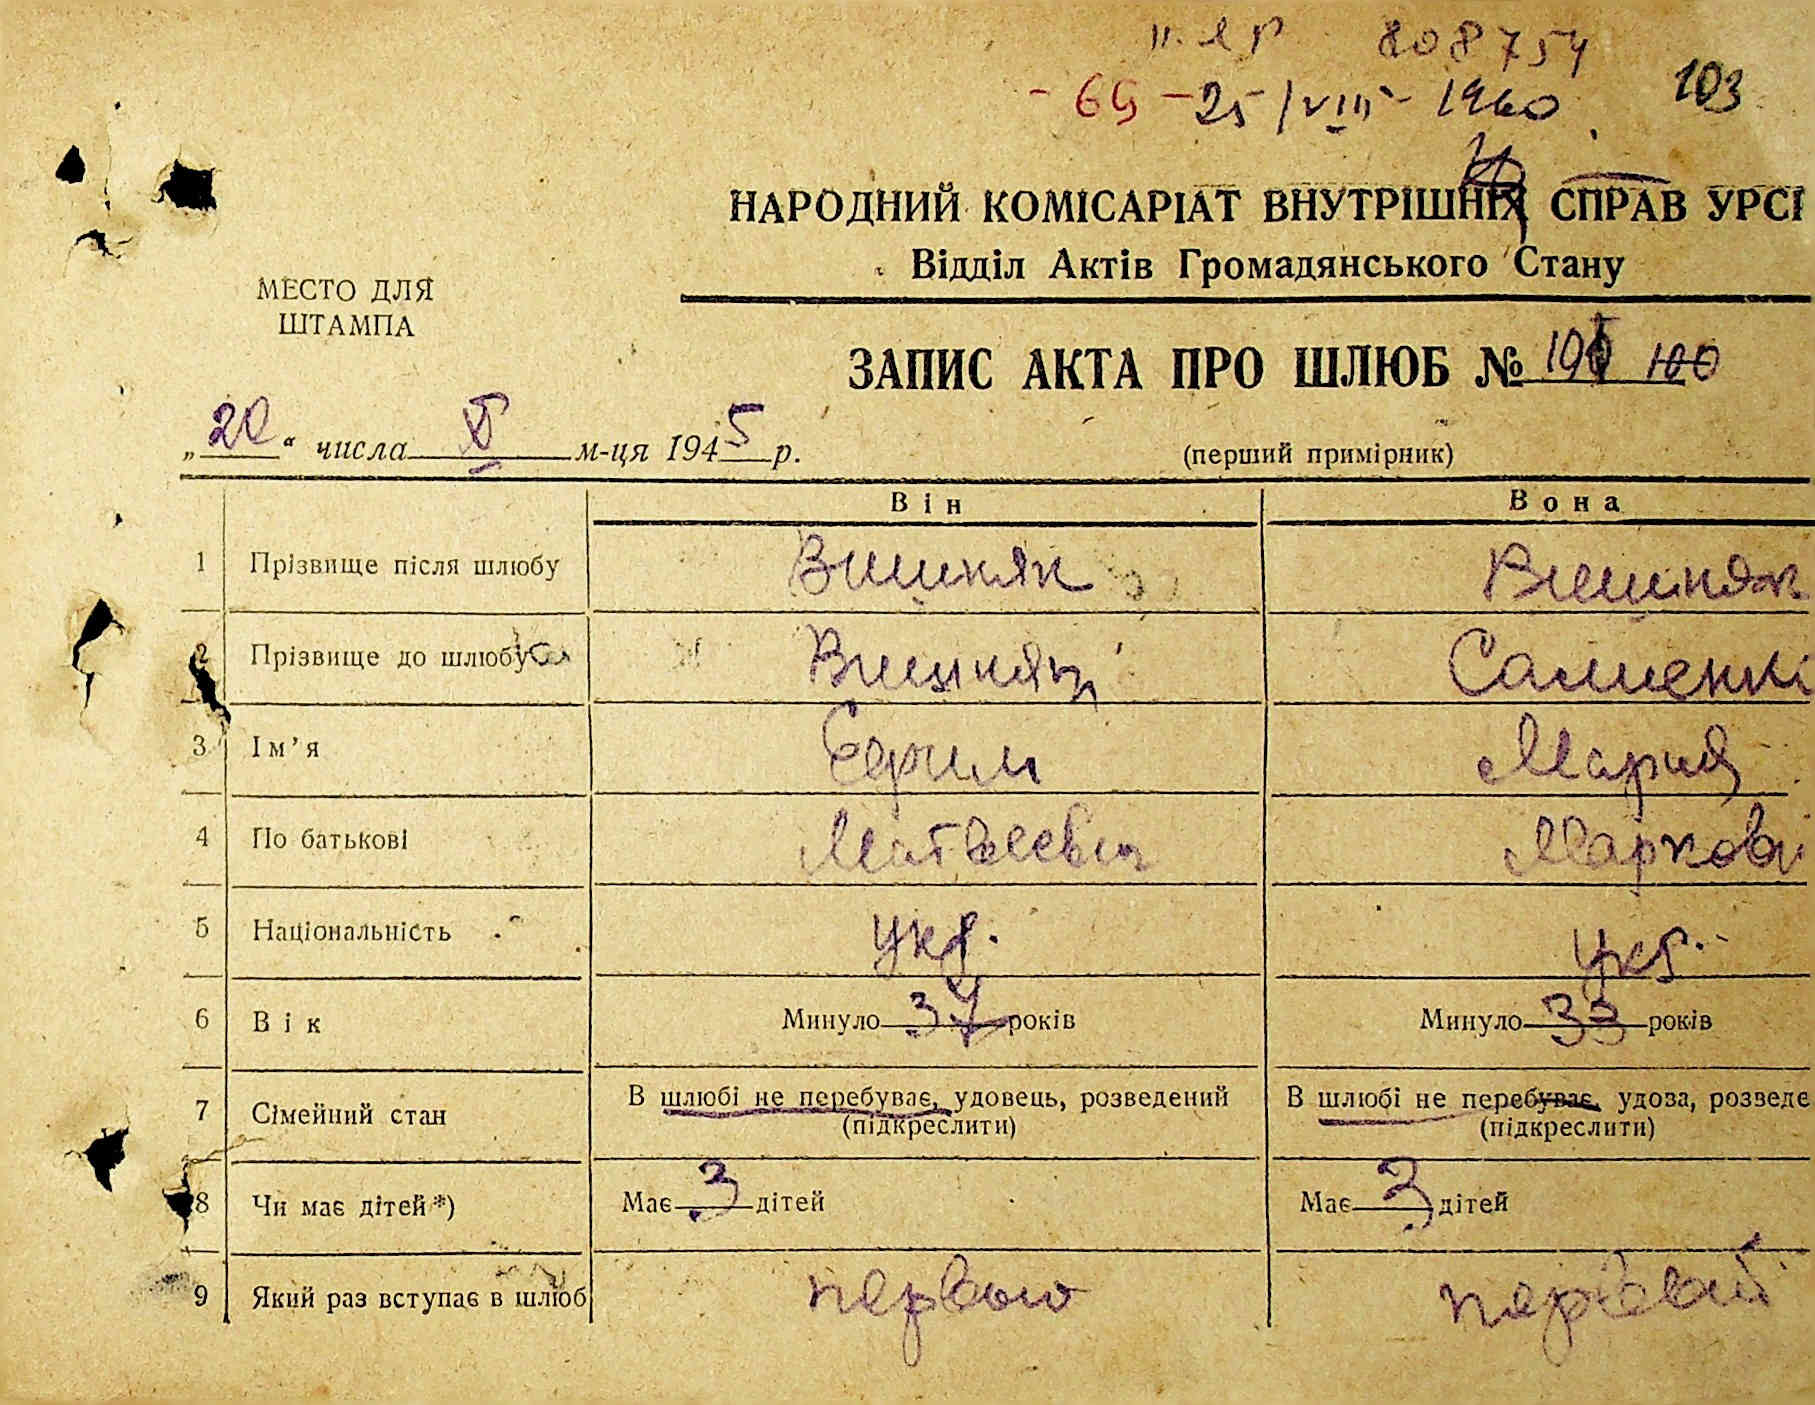 II. ЯР 808754
- 69 - 25/VIII - 1960
103
НАРОДНИЙ КОМІСАРІАТ ВНУТРІШНІХ СПРАВ УРСР
Відділ Актів Громадянського Стану
МЕСТО ДЛЯ
ШТАМПА
ЗАПИС АКТА ПРО ШЛЮБ № 100
„20“ числа м-ця 1945 р.
(перший примірник)
Він Вона
1 Прізвище після шлюбу Вишняк Вишняк
2 Прізвище до шлюбу Вишняк
3 Ім’я Ефим Мария
4 По батькові Матвеевич Маркові
5 Національність укр. укр.
6 Вік Минуло 37 років Минуло 33 років
7 Сімейний стан В шлюбі не перебуває, удовець, розведений В шлюбі не перебуває, удова, розведе
(підкреслити) (підкреслити)
8 Чи має дітей*) Має 3 дітей Має 3 дітей
9 Який раз вступає в шлюб первый